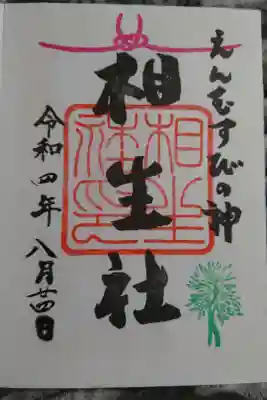 えんむすびの神
相生社
相生社印
令和四年 八月廿四日